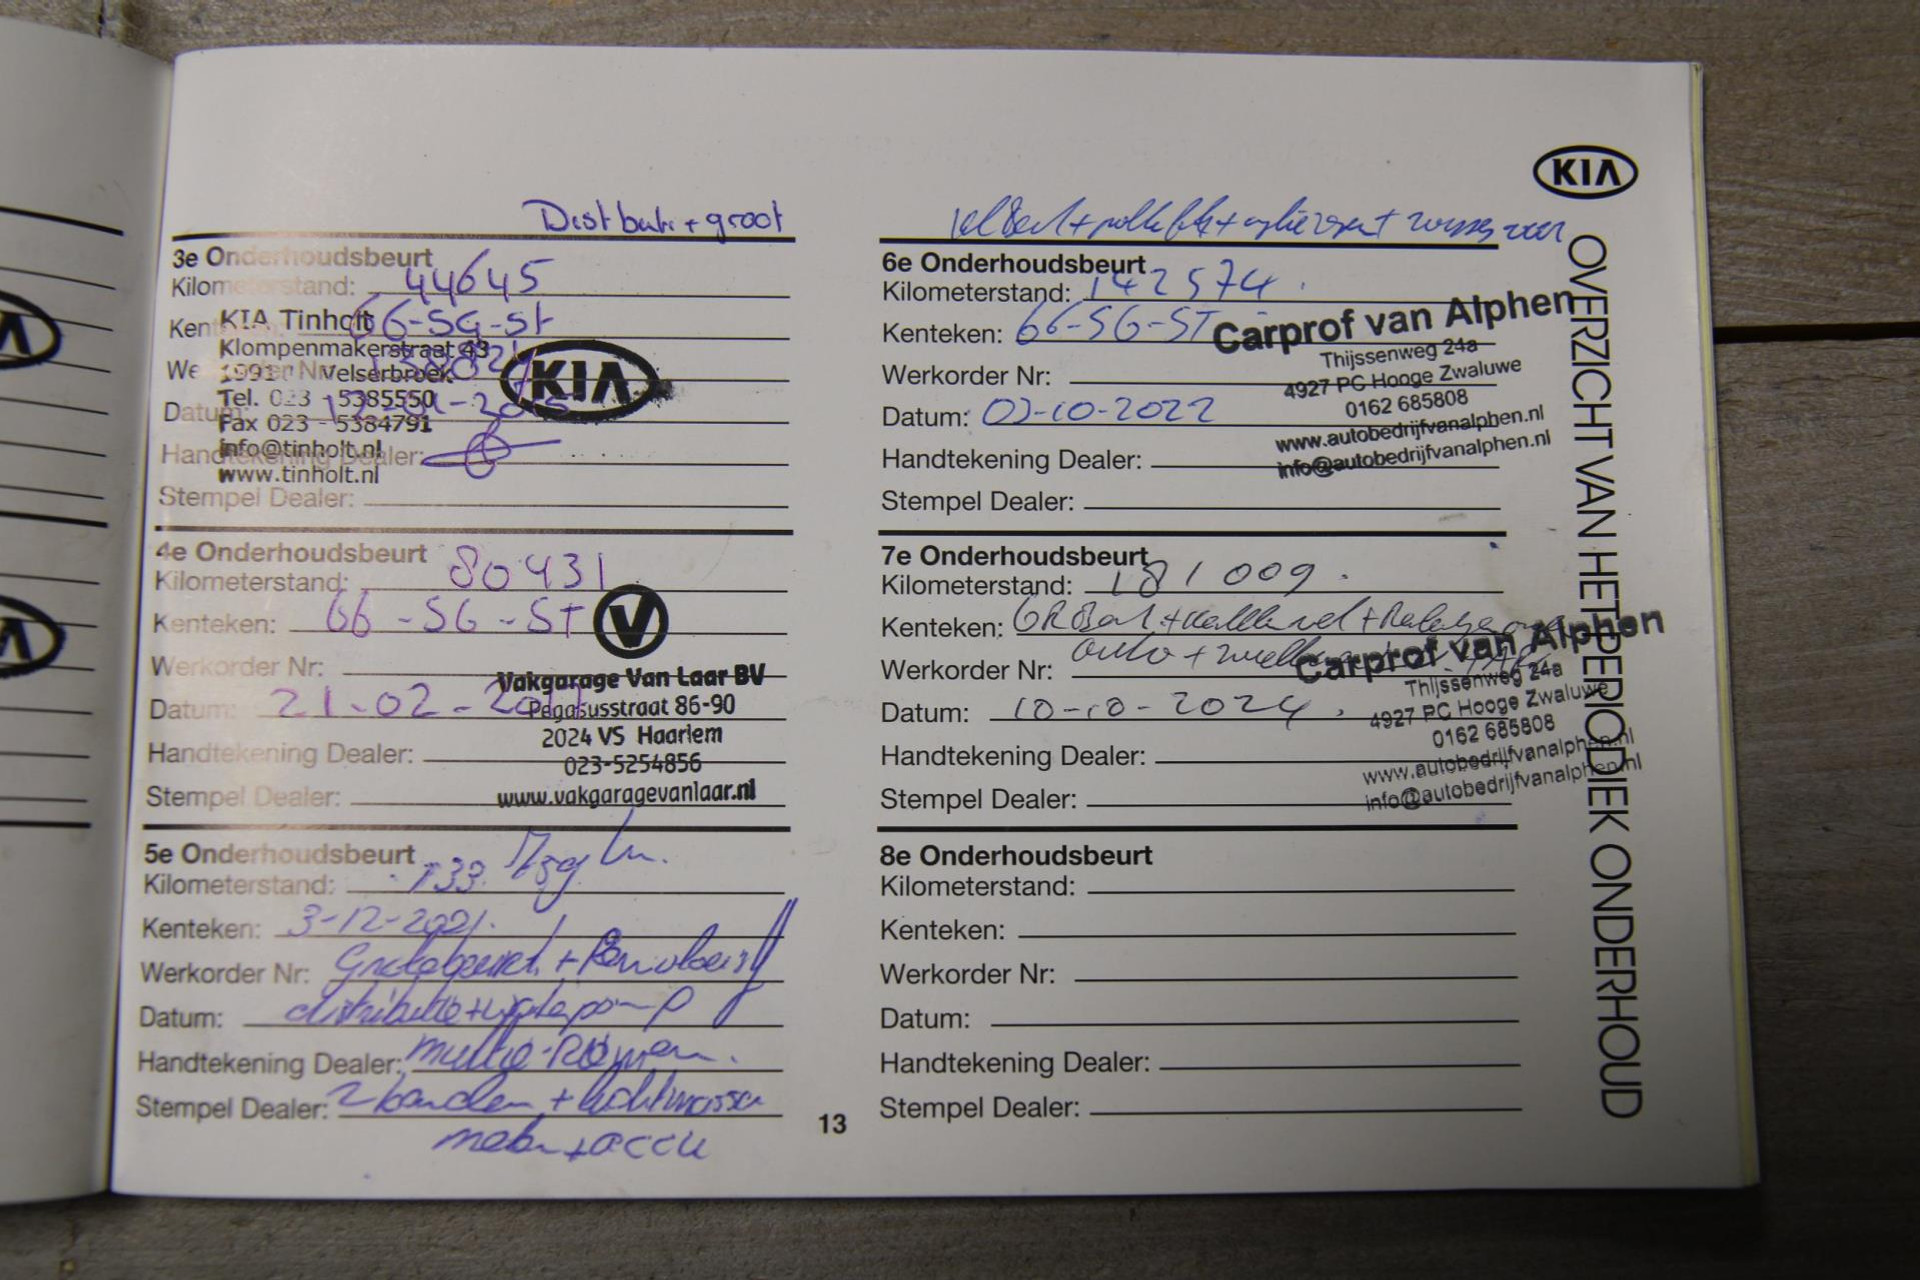 Distributie + groot
3e Onderhoudsbeurt
Kilometerstand: 44645
Kenteken: 66-SG-ST
Werkorder Nr:
Datum:
Handtekening Dealer:
Stempel Dealer:
KIA Tinholt
Klompenmakerstraat 43
1991 Velserbroek
Tel. 023 - 5385550
Fax 023 - 5384791
info@tinholt.nl
www.tinholt.nl
KIA
4e Onderhoudsbeurt
Kilometerstand: 80431
Kenteken: 66-SG-ST
Werkorder Nr:
Datum: 21-02-
Handtekening Dealer:
Stempel Dealer:
V
Vakgarage Van Laar BV
Pegasusstraat 86-90
2024 VS Haarlem
023-5254856
www.vakgaragevanlaar.nl
5e Onderhoudsbeurt
Kilometerstand: 133
Kenteken: 3-12-2021.
Werkorder Nr: Grotebeurt + Remvloeistof
Datum: distributie + waterpomp
Handtekening Dealer: multo-Riemen.
Stempel Dealer: 2 banden +
+ accu
13
KIA
6e Onderhoudsbeurt
Kilometerstand: 142574
Kenteken: 66-SG-ST
Werkorder Nr:
Datum: 03-10-2022
Handtekening Dealer:
Stempel Dealer:
Carprof van Alphen
Thijssenweg 24a
4927 PC Hooge Zwaluwe
0162 685808
www.autobedrijfvanalphen.nl
info@autobedrijfvanalphen.nl
7e Onderhoudsbeurt
Kilometerstand: 181009.
Kenteken:
Werkorder Nr: auto +
Datum: 10-10-2024
Handtekening Dealer:
Stempel Dealer:
Carprof van Alphen
Thijssenweg 24a
4927 PC Hooge Zwaluwe
0162 685808
www.autobedrijfvanalphen.nl
info@autobedrijfvanalphen.nl
8e Onderhoudsbeurt
Kilometerstand:
Kenteken:
Werkorder Nr:
Datum:
Handtekening Dealer:
Stempel Dealer:
OVERZICHT VAN HET PERIODIEK ONDERHOUD